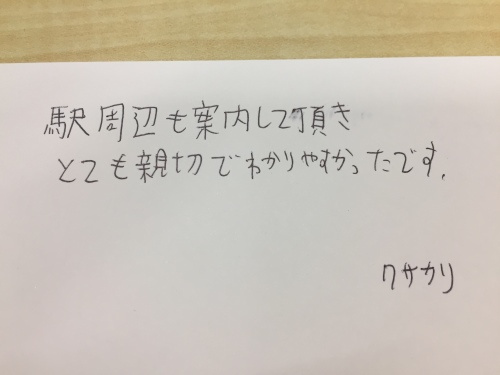 駅周辺も案内して頂き
とても親切でわかりやすかったです.
クサカリ